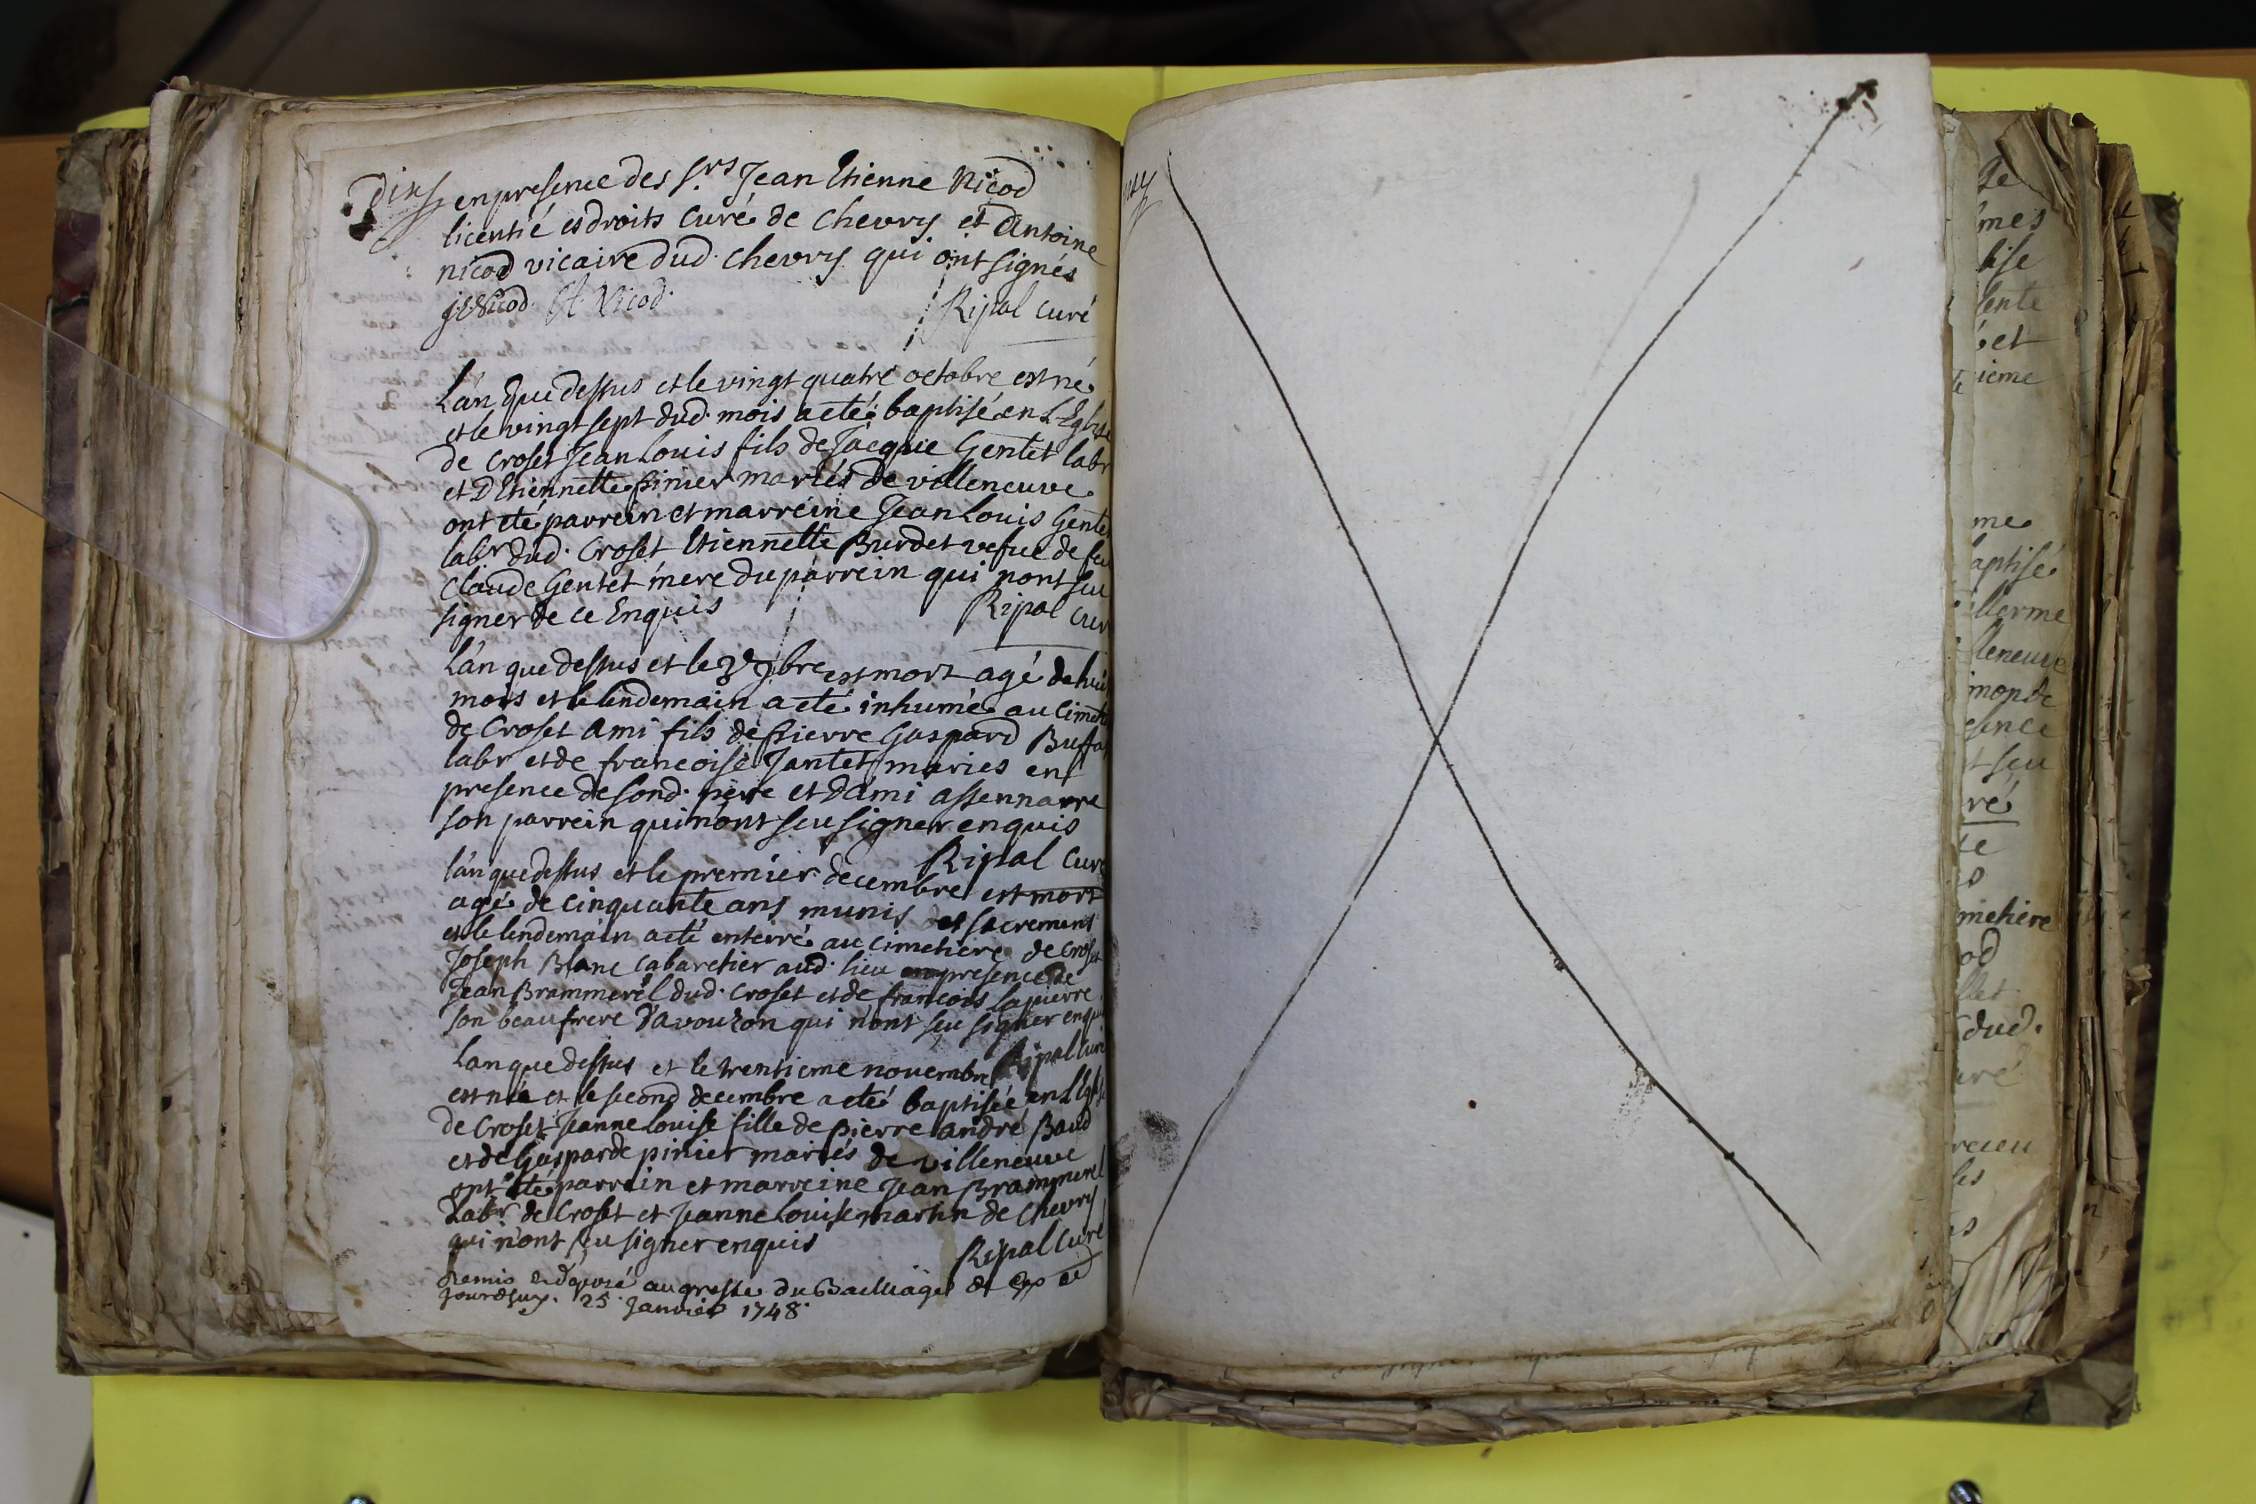 Dix en presence des srs Jean Etienne Nicod
licentié es droits curé de Chevry et Antoine
nicod vicaire dud. Chevry qui ont signés
J E Nicod. A Nicod.
Ripal curé
L'an que dessus et le vingt quatre octobre est né
et le vingt sept dud. mois a eté baptisé en L'Eglise
de Croset Jean Louis fils de Jacque Gentet labr
et D'Etiennette pinier mariés de villeneuve
ont eté parrein et marreine Jean Louis Gentet
labr dud. Croset Etiennette Burdet vefue de feu
Claude Gentet mere du parrein qui n'ont scu
signer de ce Enquis
Ripal curé
L'an que dessus et le 9bre est mort agé de huit
mois et le lendemain a eté inhumé au cimet
de Croset Ami fils de Pierre Gaspard
labr et de francoise Jantet maries en
presence de sond. père et d'ami assennarre
son parrein qui n'ont scu signer enquis
Ripal curé
l'an que dessus et le premier decembre est mort
agé de cinquante ans munis et sacrement
et le lendemain a eté enterré au cimetiere de Croset
Joseph Blanc cabaretier aud. lieu en presence de
Jean Brammerel dud. Croset et de francois Lapierre
son beaufrere d'avouzon qui n'ont scu signer enquis
Ripal curé
L'an que dessus et le trentieme novembre
est née et le second decembre a eté baptisée en L'Eglise
de Croset Jeanne Louise fille de pierre andré Baud
et de Gasparde pinier mariés de villeneuve
ont eté parrein et marreine Jean Brammerel
Labr de Croset et Jeanne Louise martin de Chevry
qui n'ont scu signer enquis
Ripal curé
Remis & déposé au greffe du Bailliage de Gex ce
jourdhuy. 25. Janvier 1748.
me
baptisé
villeneuve
presence
scu
cimetiere
dud.